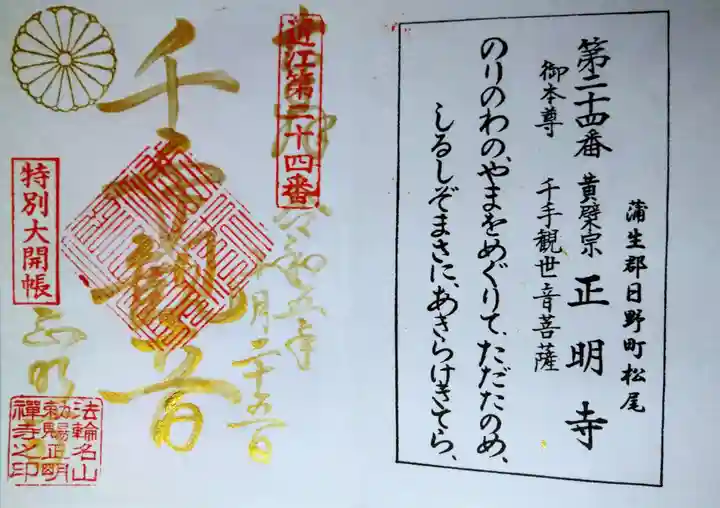 蒲生郡日野町松尾
第二十四番 黄檗宗 正明寺
御本尊 千手観世音菩薩
のりのわの、やまをめぐりて、ただたのめ、
しるしぞまさに、あきらけきてら、
近江第二十四番
奉拝
令和五年
月二十五日
千手観音
特別大開帳
正明寺
法輪名山
勅賜正明
禅寺之印